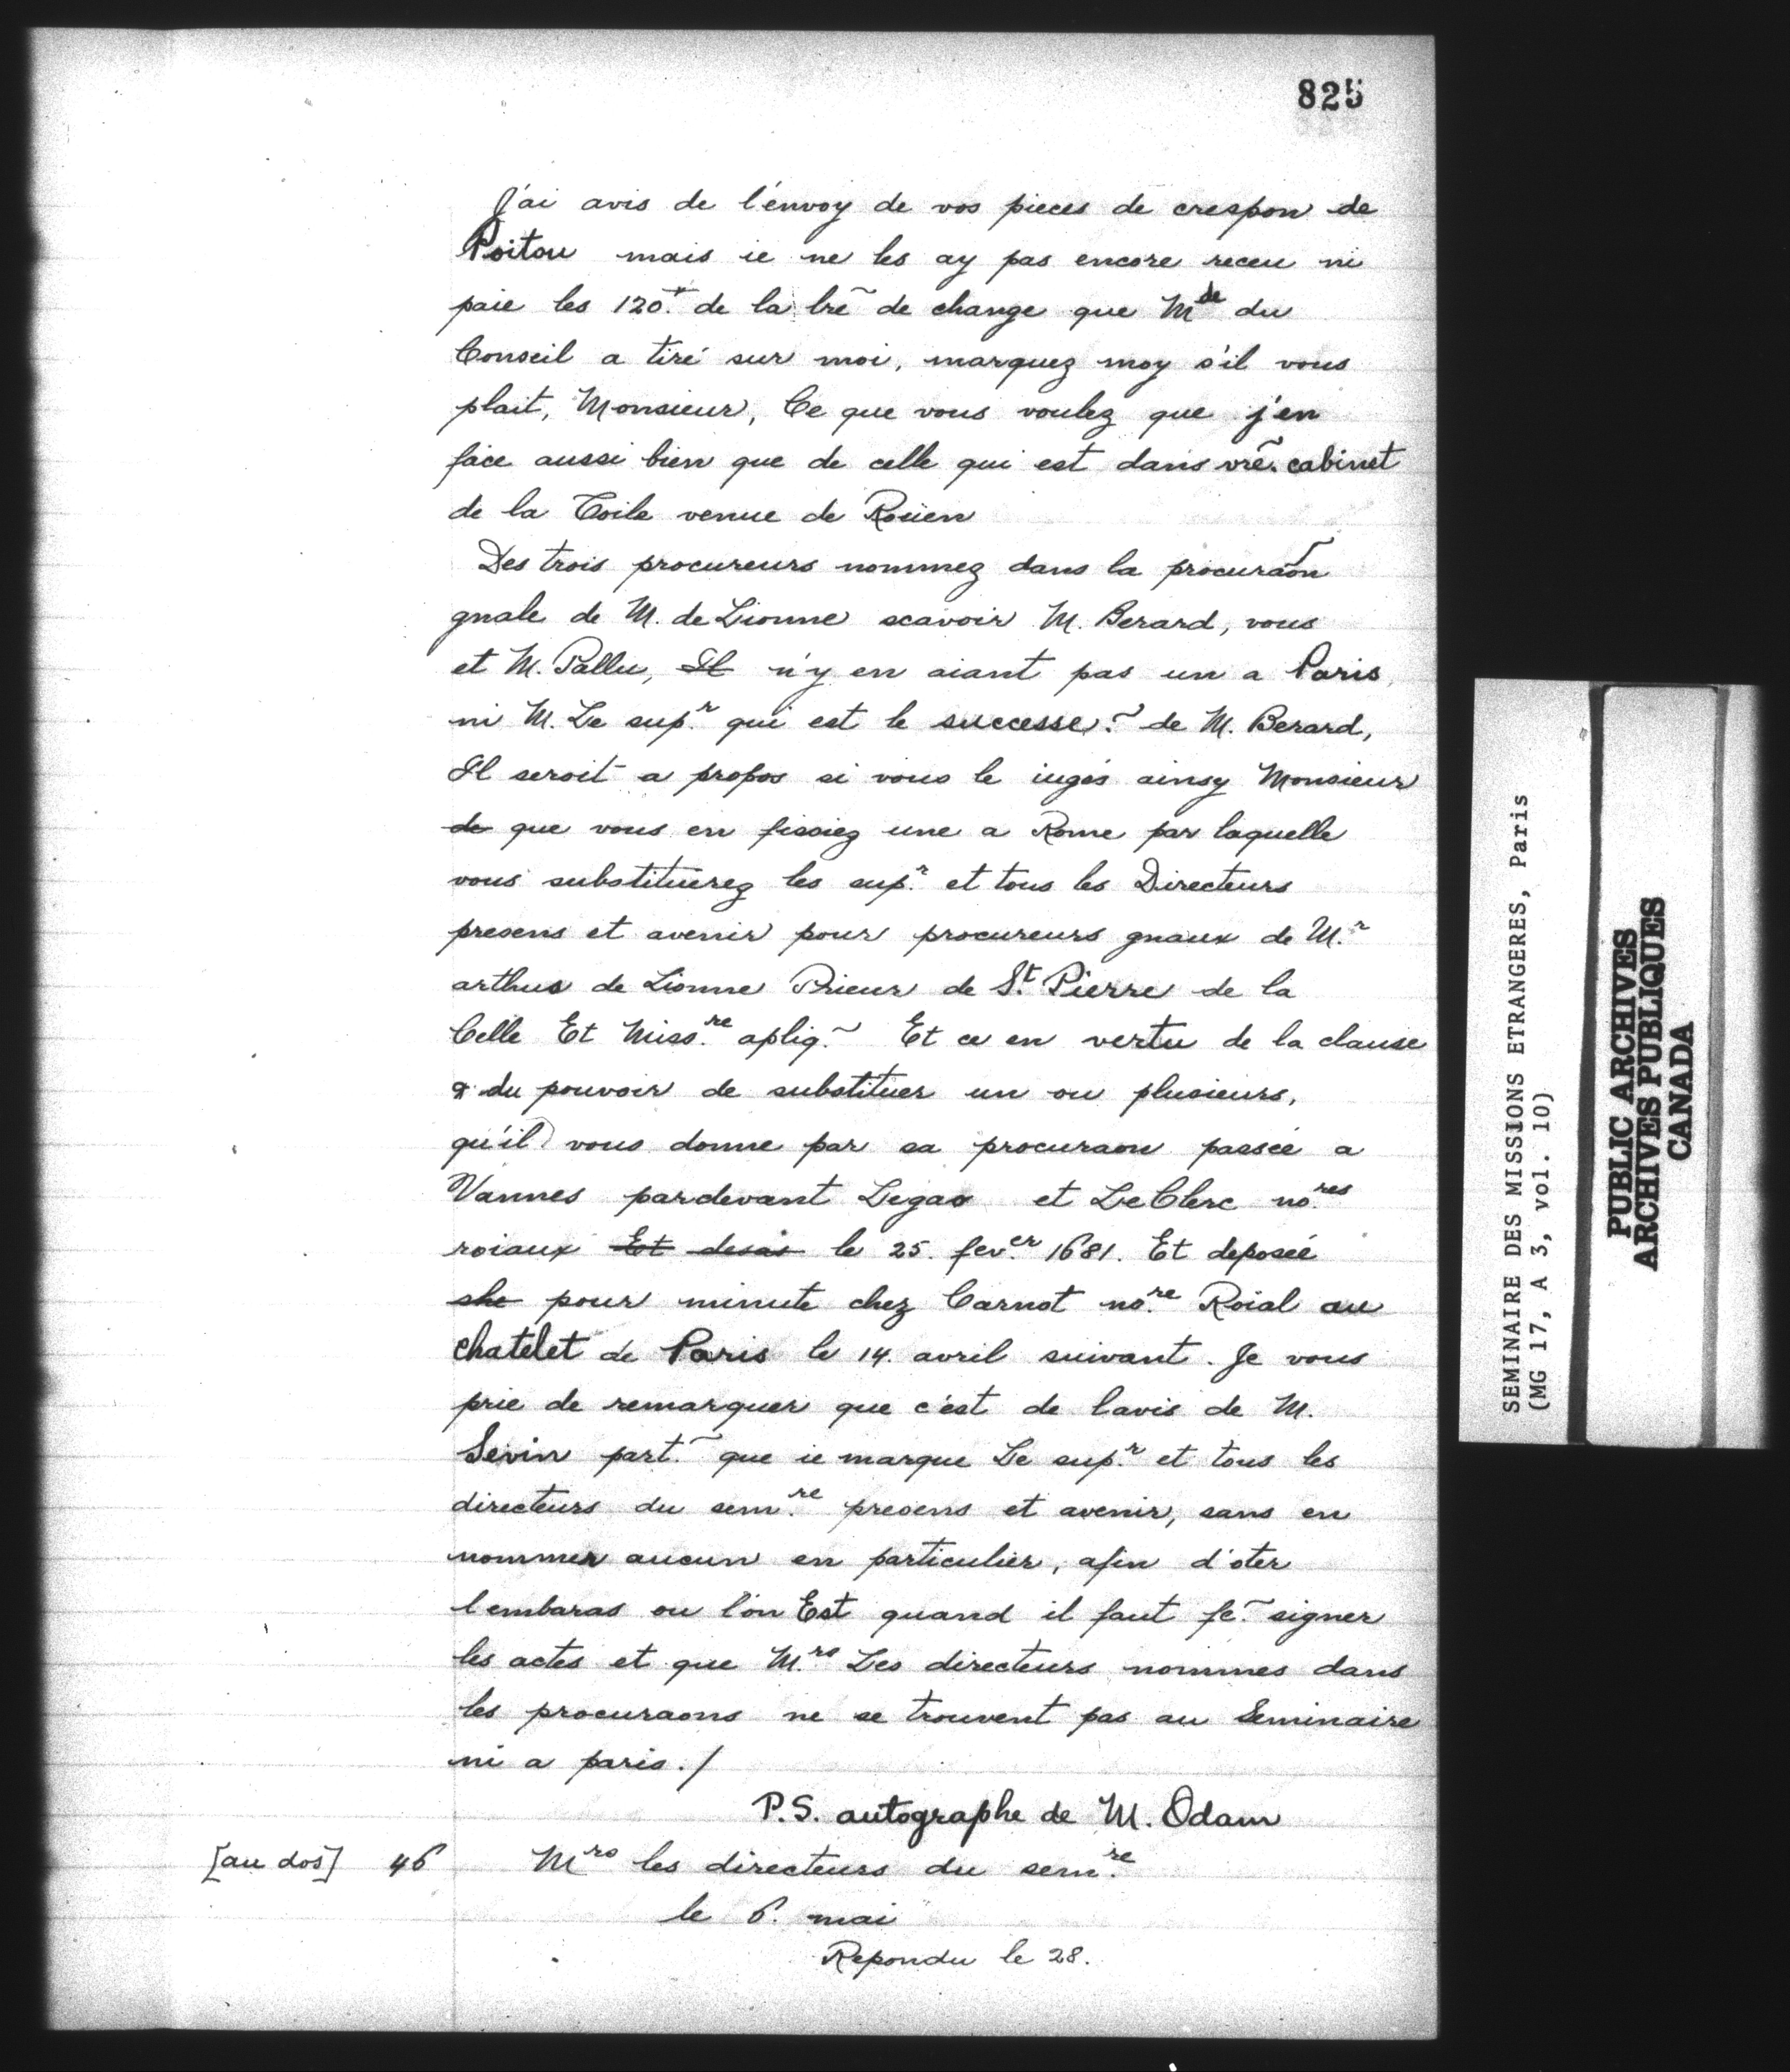 825
J'ai avis de l'envoy de vos pieces de crespon de
Poitou mais ie ne les ay pas encore receu ni
paie les 120.# de la lr̃e de change que Mde du
Conseil a tiré sur moi, marquez moy s'il vous
plait, Monsieur, Ce que vous voulez que j'en
face aussi bien que de celle qui est dans vr̃e. cabinet
de la Toile venue de Roüen
Des trois procureurs nommez dans la procuraõn
gnale de M. de Lionne scavoir M. Berard, vous
et M. Pallu, Il n'y en aiant pas un a Paris,
ni M. Le sup.r qui est le successe.r de M. Berard,
Il seroit a propos si vous le iugés ainsy Monsieur
de que vous en fissiez une a Rome par laquelle
vous substituerez les sup.r et tous les Directeurs
presens et avenir pour procureurs gnaux de M.r
arthus de Lionne Prieur de St. Pierre de la
Celle Et Miss.re apliq.~ Et ce en vertu de la clause
& du pouvoir de substituer un ou plusieurs,
qu'il vous donne par sa procuraon passée a
Vannes pardevant Legao et LeClerc no.res
roiaux Et desás le 25. fev.er 1681. Et deposée
she pour minute chez Carnot no.re Roial au
chatelet de Paris le 14. avril suivant. Je vous
prie de remarquer que c'est de lavis de M.
Sevin part.~ que ie marque Le sup.r et tous les
directeurs du sem.re presens et avenir, sans en
nommer aucun en particulier, afin d'oter
lembaras ou l'on Est quand il faut fe.~ signer
les actes et que M.rs Les directeurs nommes dans
les procuraons ne se trouvent pas au Seminaire
ni a paris./
P.S. autographe de M. Odam
[au dos] 46 Mrs les directeurs du sem.re
le 6. mai
Repondu le 28.
SEMINAIRE DES MISSIONS ETRANGERES, Paris
(MG 17, A 3, vol. 10)
PUBLIC ARCHIVES
ARCHIVES PUBLIQUES
CANADA